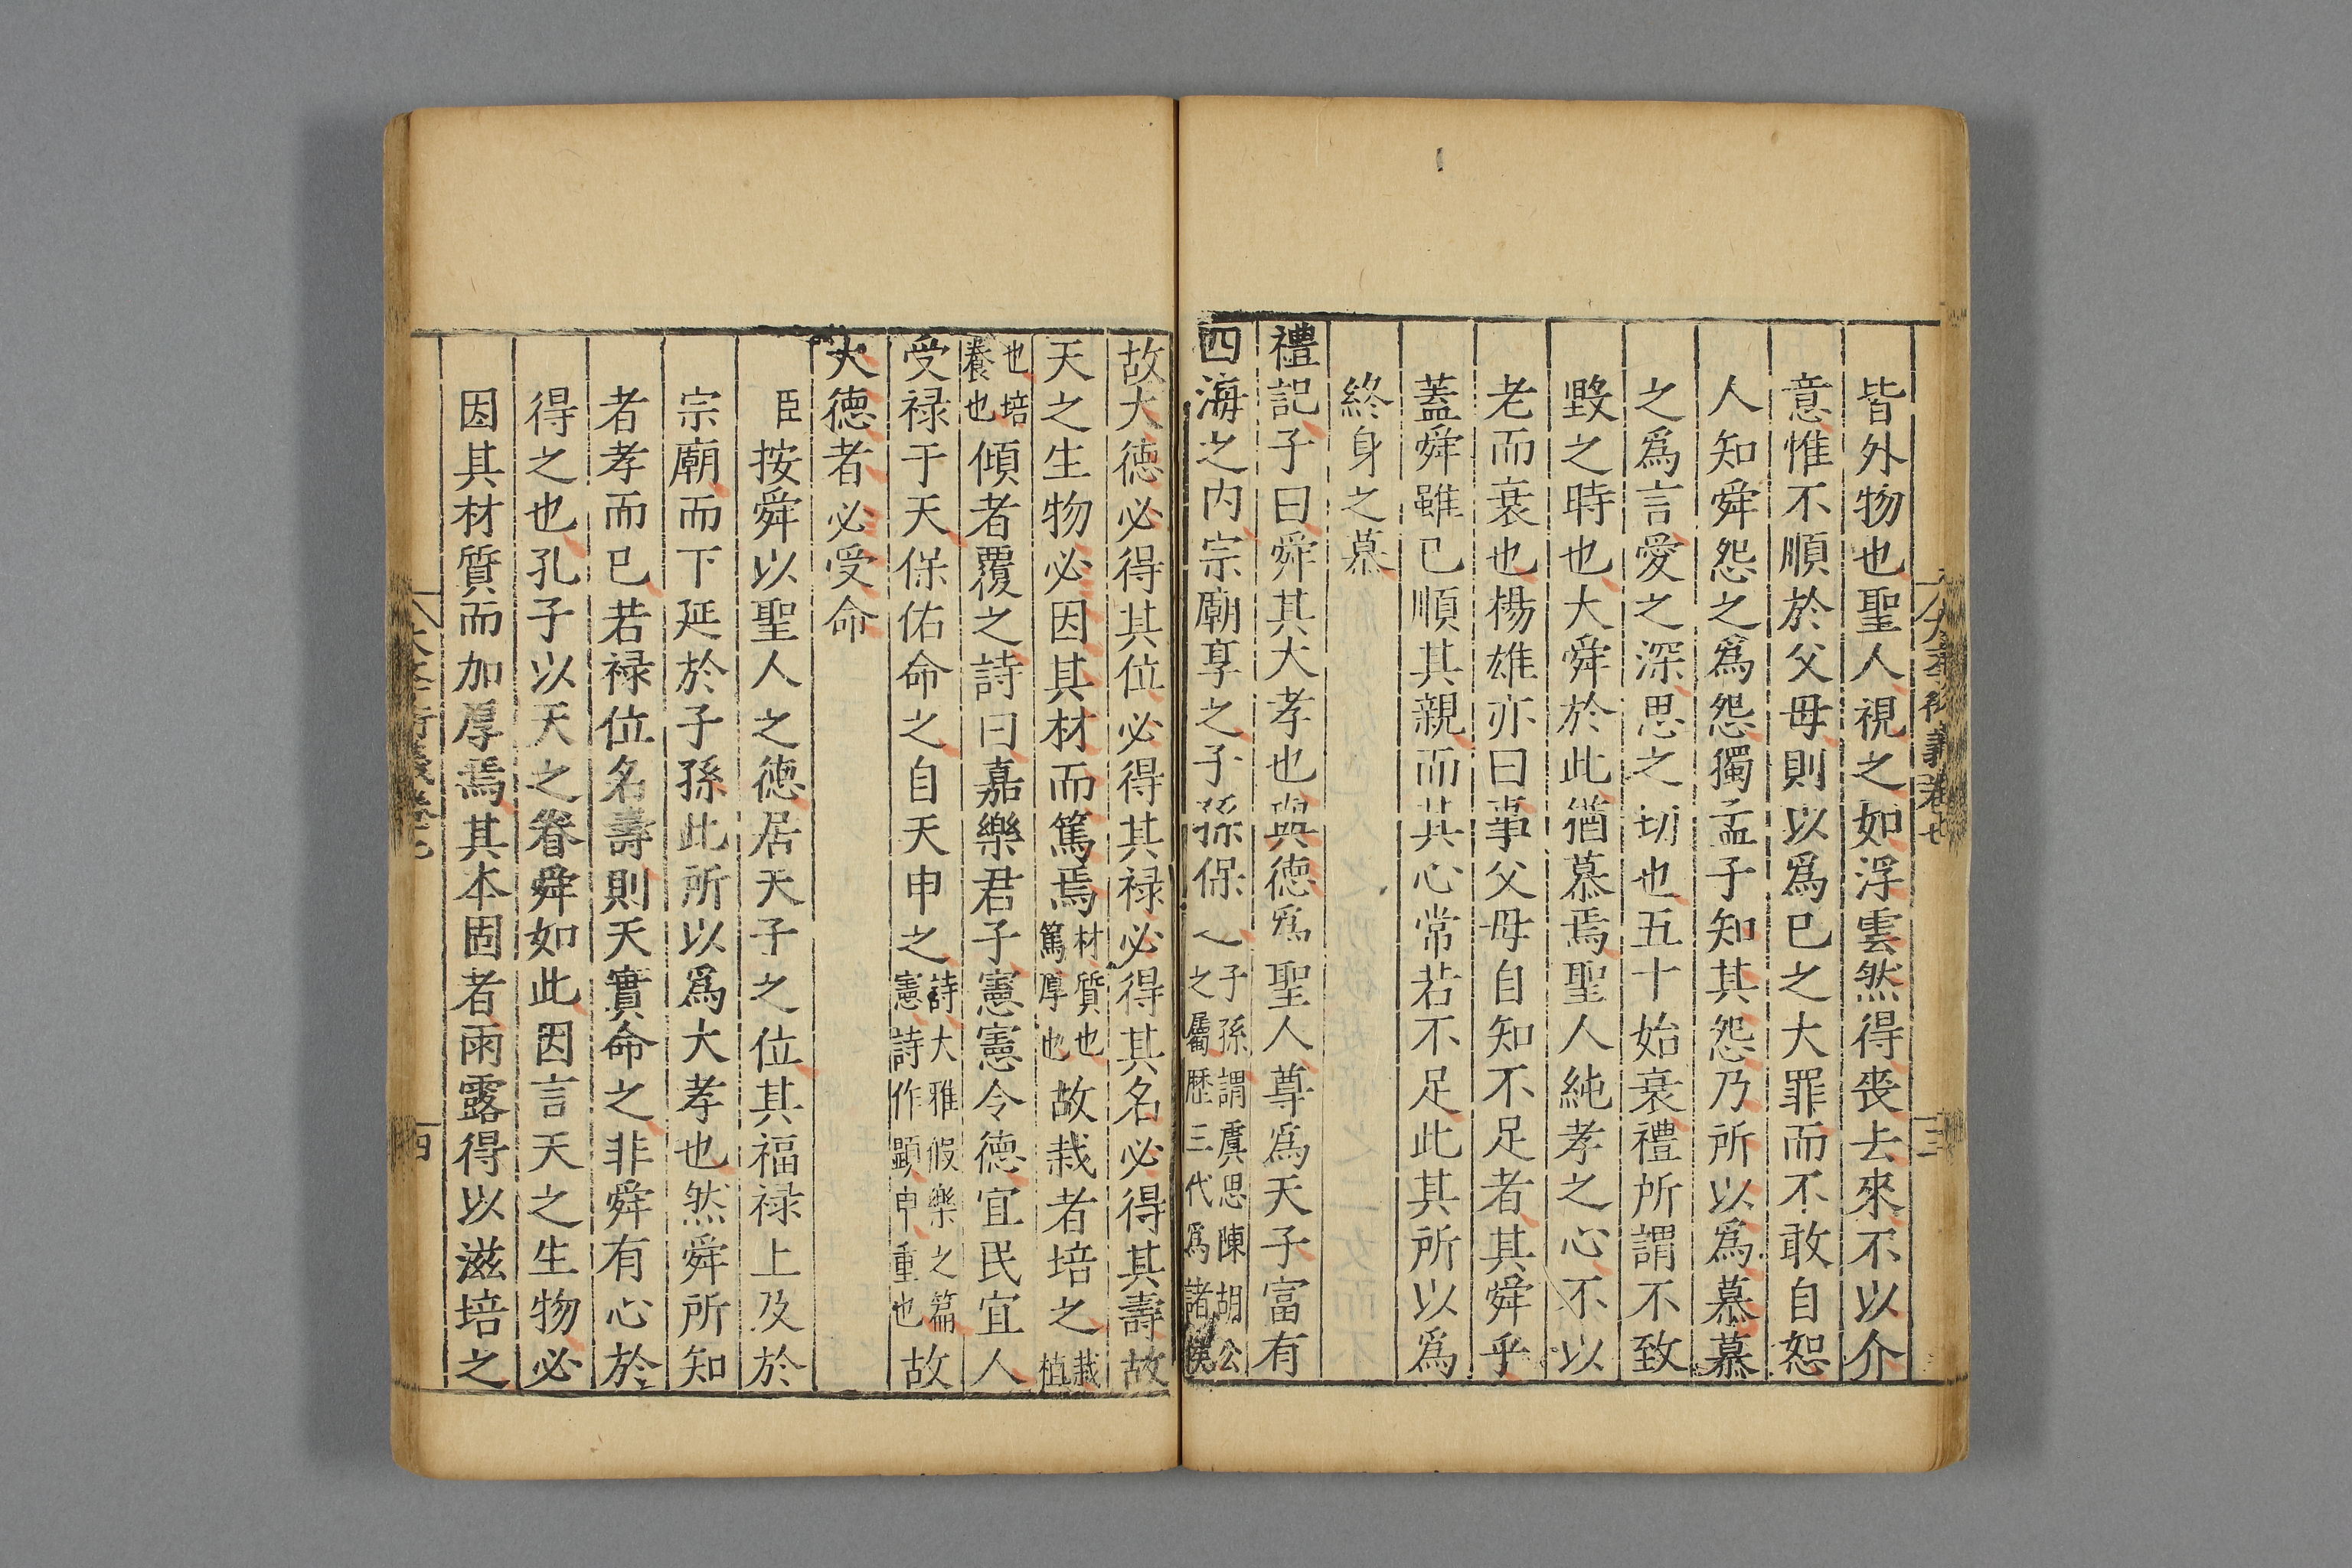 大學衍義卷七
三
皆外物也聖人視之如浮雲然得喪去來不以介
意惟不順於父母則以爲已之大罪而不敢自恕
人知舜怨之爲怨獨孟子知其怨乃所以爲慕慕
之爲言愛之深思之切也五十始衰禮所謂不致
毀之時也大舜於此猶慕焉聖人純孝之心不以
老而衰也楊雄亦曰事父母自知不足者其舜乎
蓋舜雖已順其親而其心常若不足此其所以爲
終身之慕
禮記子曰舜其大孝也與德爲聖人尊爲天子富有
四海之内宗廟享之子孫保之子孫謂虞思陳胡公之屬歷三代爲諸侯
故大德必得其位必得其禄必得其名必得其壽故
天之生物必因其材而篤焉材質也篤厚也故栽者培之栽植
也培養也傾者覆之詩曰嘉樂君子憲憲令德宜民宜人
受禄于天保佑命之自天申之詩大雅假樂之篇憲詩作顯申重也故
大德者必受命
臣按舜以聖人之德居天子之位其福禄上及於
宗廟而下延於子孫此所以爲大孝也然舜所知
者孝而已若禄位名壽則天實命之非舜有心於
得之也孔子以天之眷舜如此因言天之生物必
因其材質而加厚焉其本固者雨露得以滋培之
大學衍義卷七
四